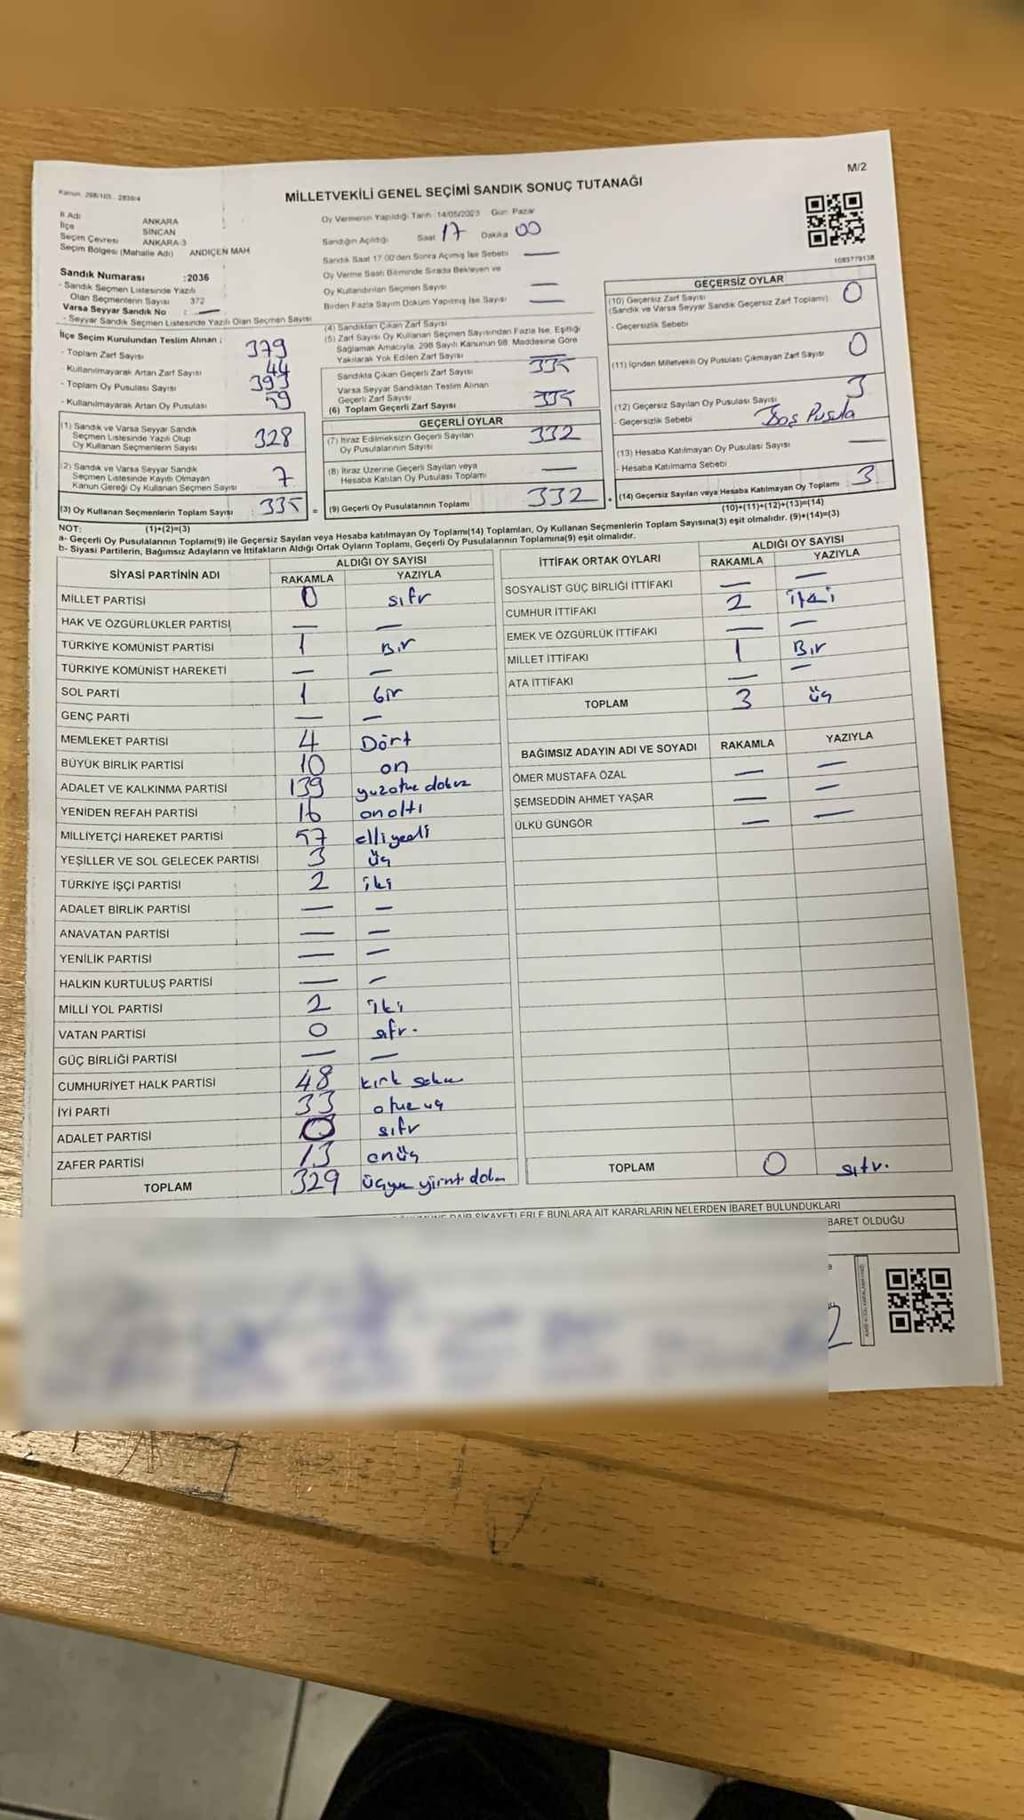 Kanun: 298/105 - 2839/4
M/2
MİLLETVEKİLİ GENEL SEÇİMİ SANDIK SONUÇ TUTANAĞI
İl Adı ANKARA
İlçe SİNCAN
Seçim Çevresi ANKARA-3
Seçim Bölgesi (Mahalle Adı) ANDİÇEN MAH
Sandık Numarası :2036
- Sandık Seçmen Listesinde Yazılı
Olan Seçmenlerin Sayısı 372
Varsa Seyyar Sandık No : —
- Seyyar Sandık Seçmen Listesinde Yazılı Olan Seçmen Sayısı
İlçe Seçim Kurulundan Teslim Alınan ;
- Toplam Zarf Sayısı 379
- Kullanılmayarak Artan Zarf Sayısı 44
- Toplam Oy Pusulası Sayısı 393
- Kullanılmayarak Artan Oy Pusulası 59
(1) Sandık ve Varsa Seyyar Sandık
Seçmen Listesinde Yazılı Olup
Oy Kullanan Seçmenlerin Sayısı 328
(2) Sandık ve Varsa Seyyar Sandık
Seçmen Listesinde Kayıtlı Olmayan
Kanun Gereği Oy Kullanan Seçmen Sayısı 7
(3) Oy Kullanan Seçmenlerin Toplam Sayısı 335 =
Oy Vermenin Yapıldığı Tarih :14/05/2023 Gün: Pazar
Sandığın Açıldığı Saat 17 Dakika 00
Sandık Saat 17:00'den Sonra Açılmış İse Sebebi —
Oy Verme Saati Bitiminde Sırada Bekleyen ve
Oy Kullandırılan Seçmen Sayısı —
Birden Fazla Sayım Döküm Yapılmış İse Sayısı —
(4) Sandıktan Çıkan Zarf Sayısı
(5) Zarf Sayısı Oy Kullanan Seçmen Sayısından Fazla İse, Eşitliği
Sağlamak Amacıyla, 298 Sayılı Kanunun 98. Maddesine Göre
Yakılarak Yok Edilen Zarf Sayısı —
Sandıkta Çıkan Geçerli Zarf Sayısı 335
Varsa Seyyar Sandıktan Teslim Alınan
Geçerli Zarf Sayısı —
(6) Toplam Geçerli Zarf Sayısı 335
GEÇERLİ OYLAR
(7) İtiraz Edilmeksizin Geçerli Sayılan
Oy Pusulası Sayısı 332
(8) İtiraz Üzerine Geçerli Sayılan veya
Hesaba Katılan Oy Pusulası Toplamı —
(9) Geçerli Oy Pusulalarının Toplamı 332
1083779138
GEÇERSİZ OYLAR
(10) Geçersiz Zarf Sayısı 0
(Sandık ve Varsa Seyyar Sandık Geçersiz Zarf Toplamı)
- Geçersizlik Sebebi
(11) İçinden Milletvekili Oy Pusulası Çıkmayan Zarf Sayısı 0
(12) Geçersiz Sayılan Oy Pusulası Sayısı 3
- Geçersizlik Sebebi Boş Pusula
(13) Hesaba Katılmayan Oy Pusulası Sayısı —
- Hesaba Katılmama Sebebi
(14) Geçersiz Sayılan veya Hesaba Katılmayan Oy Toplamı 3
(10)+(11)+(12)+(13)=(14)
NOT: (1)+(2)=(3)
a- Geçerli Oy Pusulalarının Toplamı(9) ile Geçersiz Sayılan veya Hesaba Katılmayan oy Toplamı(14) Toplamları, Oy Kullanan Seçmenlerin Toplam Sayısına(3) eşit olmalıdır. (9)+(14)=(3)
b- Siyasi Partilerin, Bağımsız Adayların ve İttifakların Aldığı Ortak Oyların Toplamı, Geçerli Oy Pusulalarının Toplamına(9) eşit olmalıdır.
SİYASİ PARTİNİN ADI ALDIĞI OY SAYISI
RAKAMLA YAZIYLA
MİLLET PARTİSİ 0 sıfr
HAK VE ÖZGÜRLÜKLER PARTİSİ — —
TÜRKİYE KOMÜNİST PARTİSİ 1 Bir
TÜRKİYE KOMÜNİST HAREKETİ — —
SOL PARTİ 1 bir
GENÇ PARTİ — —
MEMLEKET PARTİSİ 4 Dört
BÜYÜK BİRLİK PARTİSİ 10 on
ADALET VE KALKINMA PARTİSİ 139 yuzotuz dokuz
YENİDEN REFAH PARTİSİ 16 onaltı
MİLLİYETÇİ HAREKET PARTİSİ 57 elliyedi
YEŞİLLER VE SOL GELECEK PARTİSİ 3 üç
TÜRKİYE İŞÇİ PARTİSİ 2 iki
ADALET BİRLİK PARTİSİ — —
ANAVATAN PARTİSİ — —
YENİLİK PARTİSİ — —
HALKIN KURTULUŞ PARTİSİ — —
MİLLİ YOL PARTİSİ 2 iki
VATAN PARTİSİ 0 sıfr.
GÜÇ BİRLİĞİ PARTİSİ — —
CUMHURİYET HALK PARTİSİ 48 kırk sekiz
İYİ PARTİ 33 otuz üç
ADALET PARTİSİ 0 sıfr
ZAFER PARTİSİ 13 onüç
TOPLAM 329 üçyüz yirmi dokuz
İTTİFAK ORTAK OYLARI ALDIĞI OY SAYISI
RAKAMLA YAZIYLA
SOSYALİST GÜÇ BİRLİĞİ İTTİFAKI — —
CUMHUR İTTİFAKI 2 iki
EMEK VE ÖZGÜRLÜK İTTİFAKI — —
MİLLET İTTİFAKI 1 Bir
ATA İTTİFAKI — —
TOPLAM 3 üç
BAĞIMSIZ ADAYIN ADI VE SOYADI RAKAMLA YAZIYLA
ÖMER MUSTAFA ÖZAL — —
ŞEMSEDDİN AHMET YAŞAR — —
ÜLKÜ GÜNGÖR — —
TOPLAM 0 sıfr.
DAİR ŞİKAYETLERLE BUNLARA AİT KARARLARIN NELERDEN İBARET BULUNDUKLARI
BARET OLDUĞU